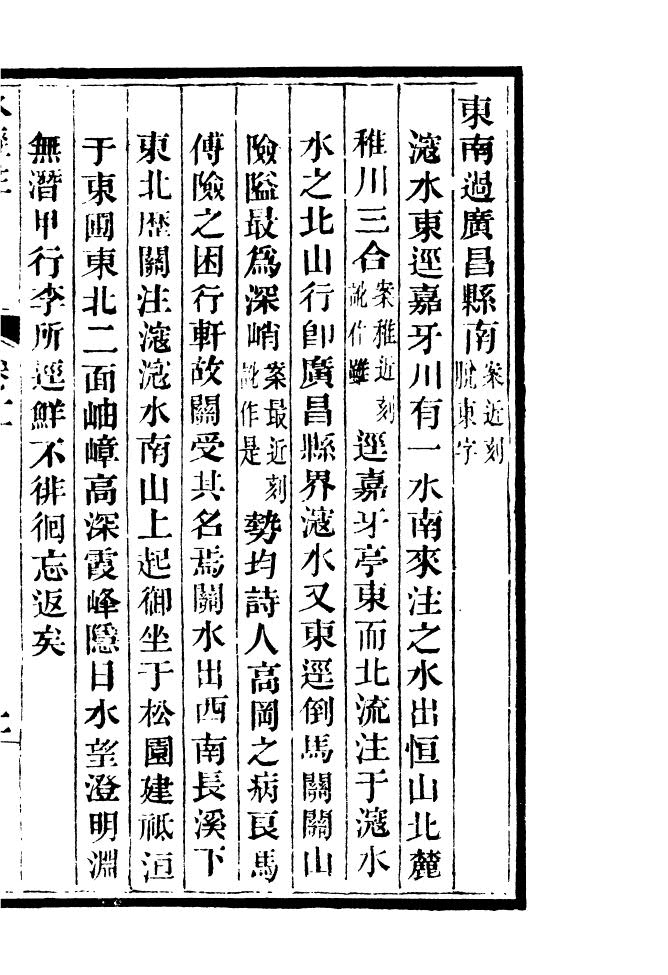 東南過廣昌縣南案近刻脫東字
滱水東逕嘉牙川有一水南來注之水出恒山北麓
稚川三合案稚近刻訛作雖逕嘉牙亭東而北流注于滱水
水之北山行卽廣昌縣界滱水又東逕倒馬關關山
險隘最爲深峭案最近刻訛作是勢均詩人高岡之病良馬
傅險之困行軒故關受其名焉關水出西南長溪下
東北歴關注滱滱水南山上起御坐于松園建祗洹
于東圃東北二面岫嶂高深霞峰隱日水望澄明淵
無潛甲行李所逕鮮不徘徊忘返矣